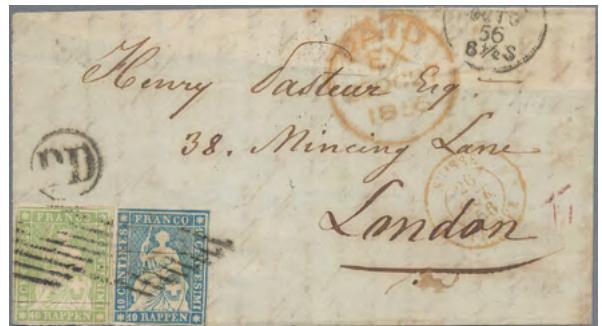 56
8½S
PAID
EX
1856
Henry Pasteur Esq.
38. Mincing Lane
London
PD
FRANCO
40 RAPPEN
FRANCO
10 CENTIMES
10 RAPPEN